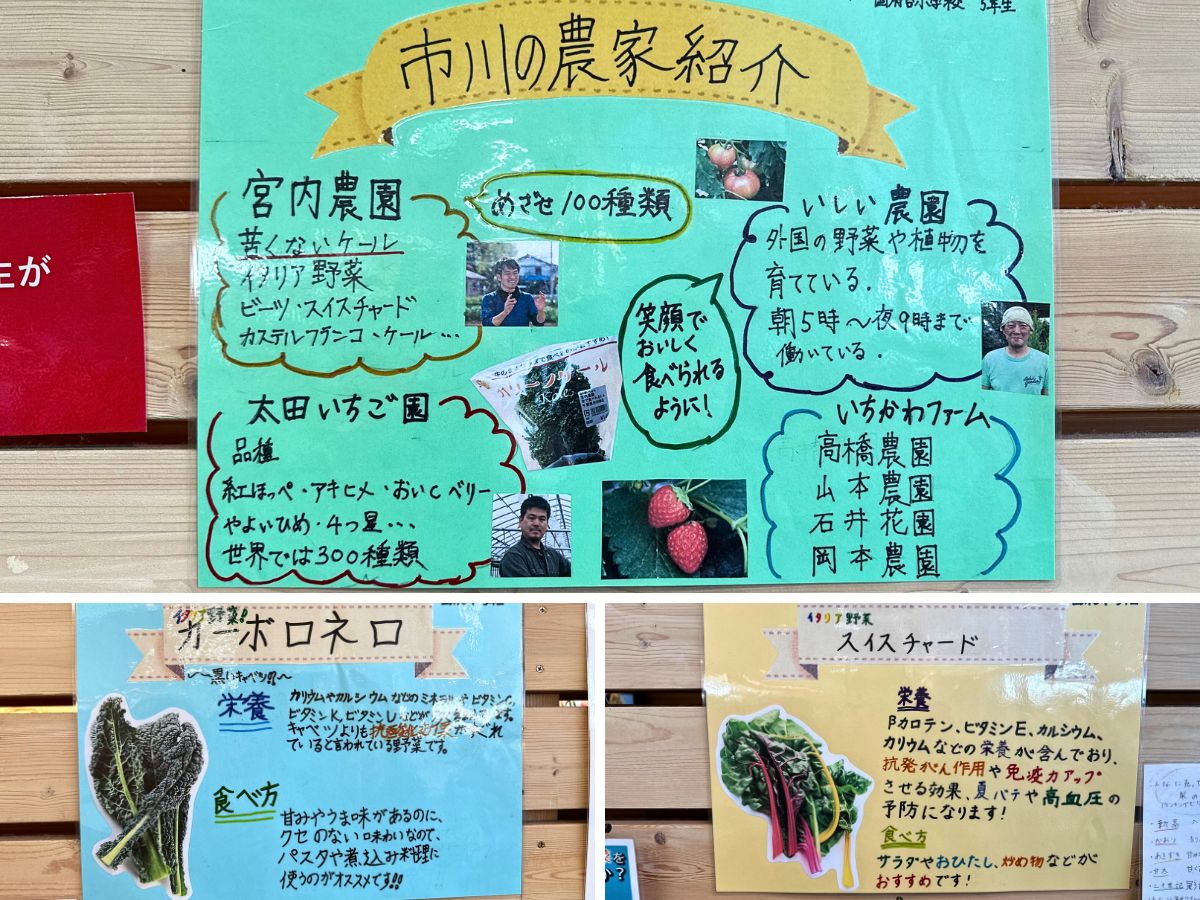 小学校 5年生
市川の農家紹介
生が
宮内農園
苦くないケール
イタリア野菜
ビーツ・スイスチャード
カステルフランコ・ケール…
めざせ100種類
いしい農園
外国の野菜や植物を
育てている.
朝5時〜夜9時まで
働いている.
笑顔で
おいしく
食べられる
ように!
グリーンケール
太田いちご園
品種
紅ほっぺ・アキヒメ・おいCベリー
やよいひめ・4つ星…
世界では300種類
いちかわファーム
高橋農園
山本農園
石井花園
岡本農園
イタリア野菜!!
カーボロネロ
〜黒いキャベツ!?〜
栄養
カリウムやカルシウムなどのミネラルやビタミンC、
ビタミンK、ビタミンUなどが
キャベツよりも抗酸化効果がすぐれ
ていると言われている野菜です。
食べ方
甘みやうま味があるのに、
クセのない味わいなので、
パスタや煮込み料理に
使うのがオススメです!!
イタリア野菜
スイスチャード
栄養
βカロテン、ビタミンE、カルシウム、
カリウムなどの栄養が含んでおり、
抗発がん作用や免疫力アップ
させる効果、夏バテや高血圧の
予防になります!
食べ方
サラダやおひたし、炒め物などが
おすすめです!